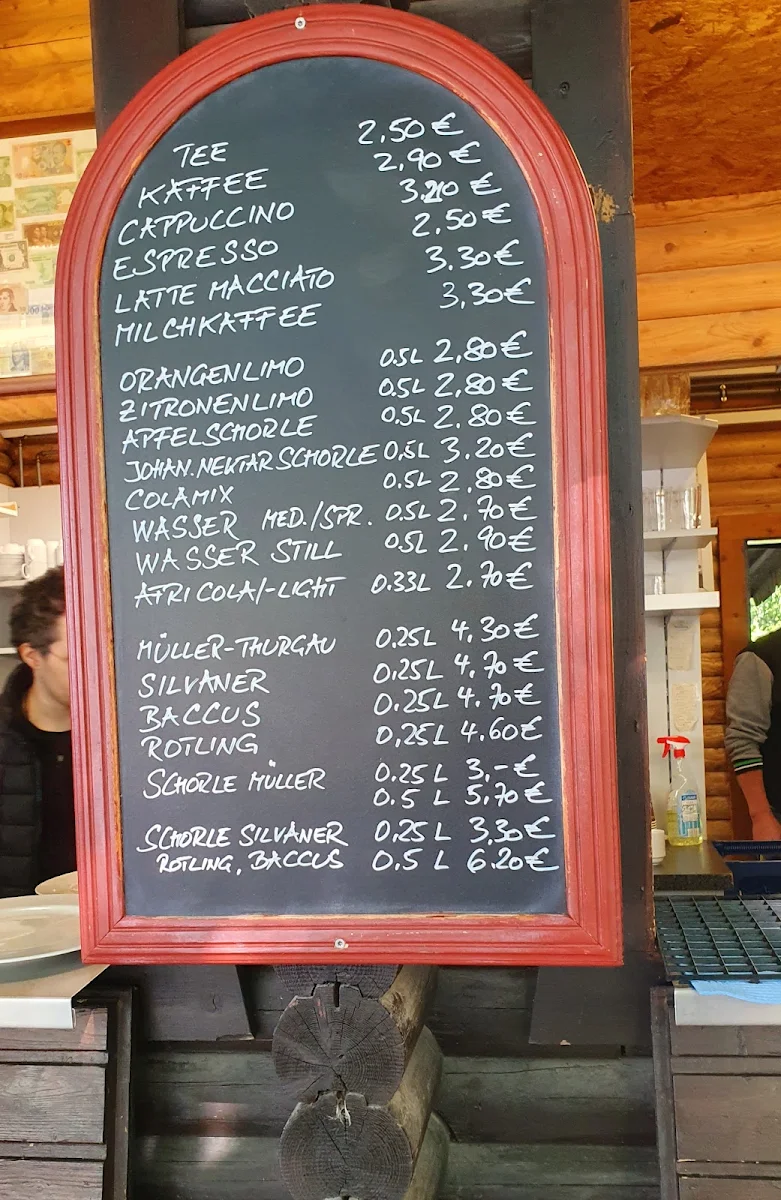 TEE 2,50 €
KAFFEE 2,90 €
CAPPUCCINO €
ESPRESSO 2.50 €
LATTE MACCIATO 3.30 €
MILCHKAFFEE 3,30 €
ORANGENLIMO 0.5L 2,80 €
ZITRONENLIMO 0.5L 2,80 €
APFELSCHORLE 0,5L 2.80 €
JOHAN. NEKTAR SCHORLE 0,5L 3.20 €
COLAMIX 0.5L 2,80 €
WASSER MED./SPR. 0.5L 2,70 €
WASSER STILL 0.5L 2.90 €
AFRI COLA/-LIGHT 0.33L 2.70 €
MÜLLER-THURGAU 0.25L 4.30 €
SILVANER 0.25L 4.70 €
BACCUS 0.25L 4.70 €
ROTLING 0,25L 4.60 €
SCHORLE MÜLLER 0.25 L 3,- €
0.5 L 5,70 €
SCHORLE SILVANER 0,25 L 3,30 €
ROTLING, BACCUS 0.5 L 6.20 €